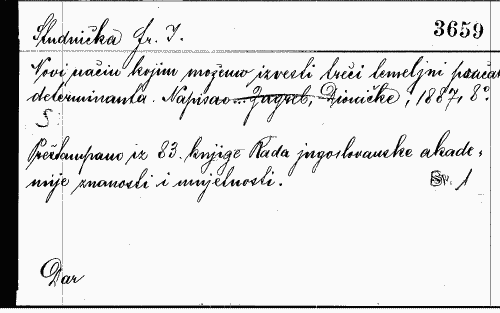 Studnička Fr. J. 3659
Novi način kojim možemo izvesti treći temeljni poučak
determinanta. Napisao — Zagreb, Dionička, 1887, 8°.
Preštampano iz 83. knjige Rada jugoslovanske akade-
mije znanosti i umjetnosti. 1
Dar